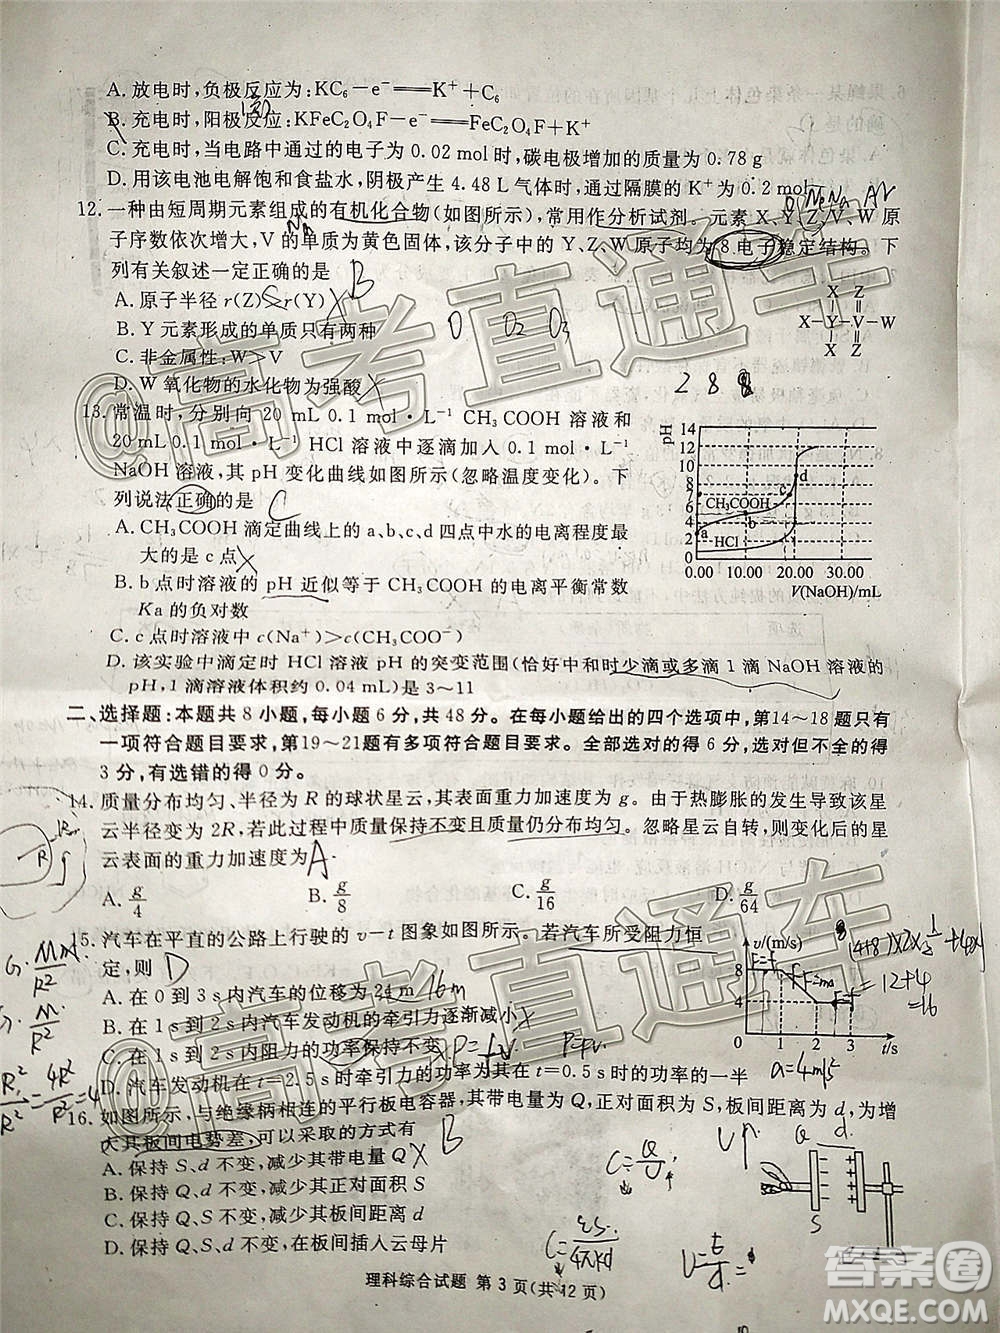 A. 放电时,负极反应为:KC₆-e⁻══K⁺+C₆
B. 充电时,阳极反应:KFeC₂O₄F-e⁻══FeC₂O₄F+K⁺
C. 充电时,当电路中通过的电子为 0.02 mol时,碳电极增加的质量为 0.78 g
D. 用该电池电解饱和食盐水,阴极产生 4.48 L 气体时,通过隔膜的 K⁺为 0.2 mol
12. 一种由短周期元素组成的有机化合物(如图所示),常用作分析试剂。元素 X、Y、Z、V、W 原
子序数依次增大,V 的单质为黄色固体,该分子中的 Y、Z、W 原子均为 8 电子稳定结构。下
列有关叙述一定正确的是
B
A. 原子半径 r(Z)<r(Y)
B. Y 元素形成的单质只有两种
O O₂ O₃
C. 非金属性:W>V
D. W 氧化物的水化物为强酸
2 8 8
X Z
X-Y-V-W
X Z
13. 常温时,分别向 20 mL 0.1 mol·L⁻¹ CH₃COOH 溶液和
20 mL 0.1 mol·L⁻¹ HCl 溶液中逐滴加入 0.1 mol·L⁻¹
NaOH 溶液,其 pH 变化曲线如图所示(忽略温度变化)。下
列说法正确的是
C
A. CH₃COOH 滴定曲线上的 a、b、c、d 四点中水的电离程度最
大的是 c 点
B. b 点时溶液的 pH 近似等于 CH₃COOH 的电离平衡常数
Ka 的负对数
C. c 点时溶液中 c(Na⁺)>c(CH₃COO⁻)
D. 该实验中滴定时 HCl 溶液 pH 的突变范围(恰好中和时少滴或多滴 1 滴 NaOH 溶液的
pH,1 滴溶液体积约 0.04 mL)是 3~11
pH
14
12
10
8
6
4
2
CH₃COOH
HCl
a
b
c
d
0.00 10.00 20.00 30.00
V(NaOH)/mL
二、选择题:本题共 8 小题,每小题 6 分,共 48 分。在每小题给出的四个选项中,第14~18题只有
一项符合题目要求,第19~21题有多项符合题目要求。全部选对的得 6 分,选对但不全的得
3 分,有选错的得 0 分。
14. 质量分布均匀、半径为 R 的球状星云,其表面重力加速度为 g。由于热膨胀的发生导致该星
云半径变为 2R,若此过程中质量保持不变且质量仍分布均匀。忽略星云自转,则变化后的星
云表面的重力加速度为
A
A. g/4
B. g/8
C. g/16
D. g/64
15. 汽车在平直的公路上行驶的 v-t 图象如图所示。若汽车所受阻力恒
定,则
D
A. 在 0 到 3 s 内汽车的位移为 24 m
16m
B. 在 1 s 到 2 s 内汽车发动机的牵引力逐渐减小
C. 在 1 s 到 2 s 内阻力的功率保持不变
D. 汽车发动机在 t=2.5 s 时牵引力的功率为在 t=0.5 s 时的功率的一半
v/(m/s)
8
4
0 1 2 3 t/s
=12+4
=16
a=4m/s²
16. 如图所示,与绝缘柄相连的平行板电容器,其带电量为 Q,正对面积为 S,板间距离为 d,为增
大其板间电势差,可以采取的方式有
B
A. 保持 S、d 不变,减少其带电量 Q
B. 保持 Q、d 不变,减少其正对面积 S
C. 保持 Q、S 不变,减少其板间距离 d
D. 保持 Q、S 不变,在板间插入云母片
U↑
Q d
S
理科综合试题 第 3 页(共 12 页)
@高考直通车
@高考直通车
答案圈
MXQE.COM